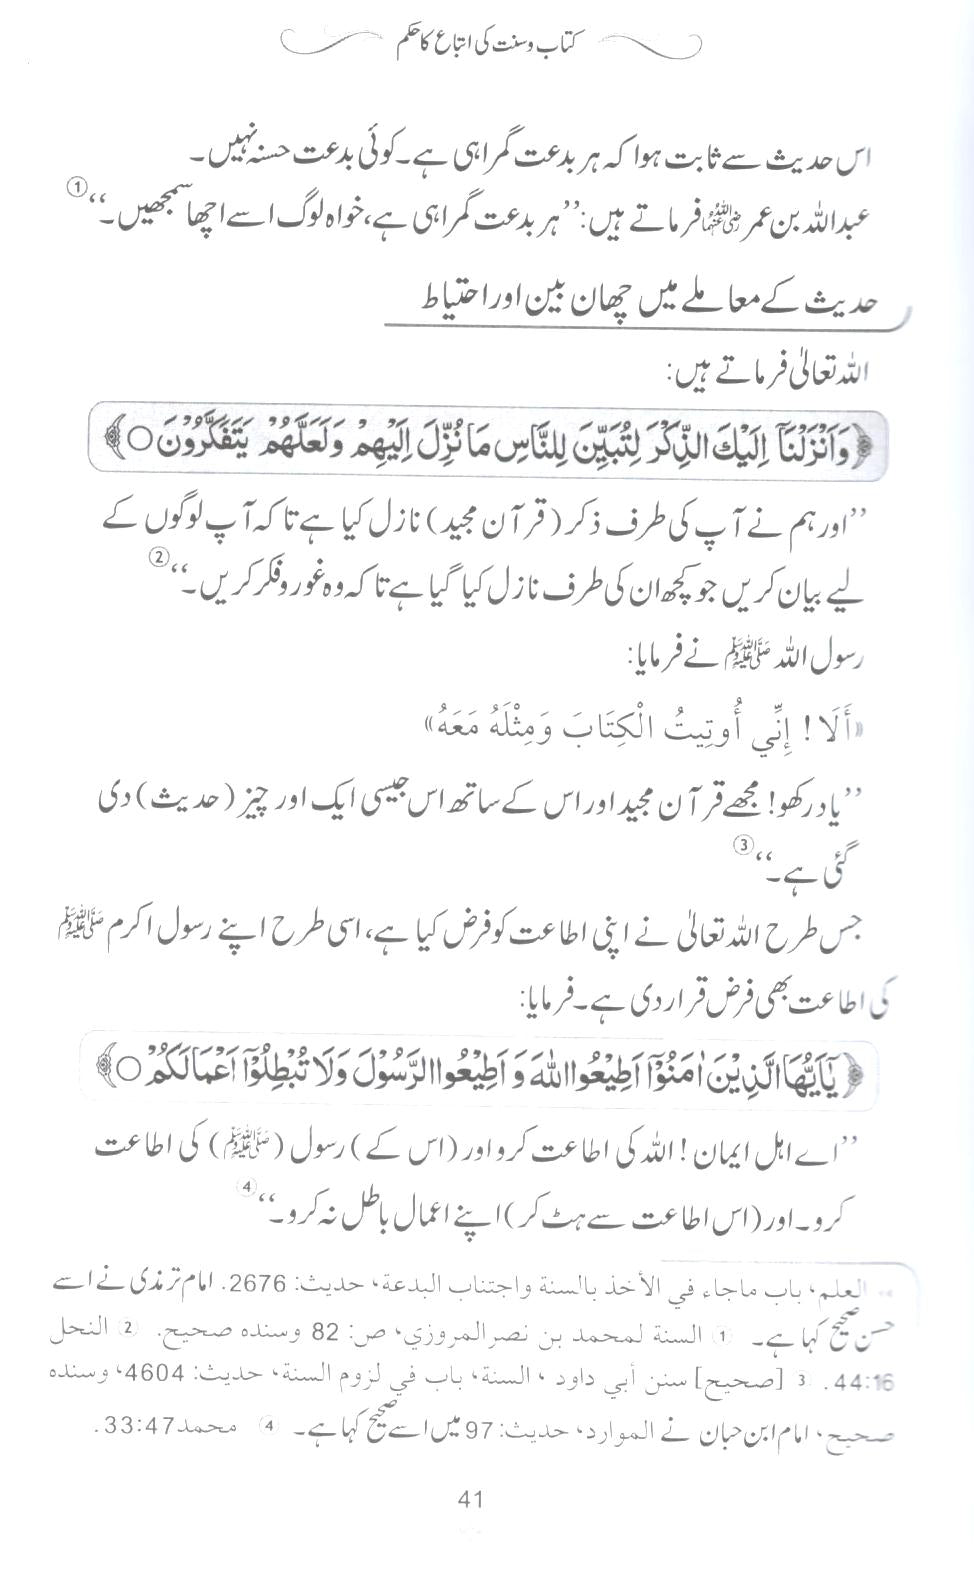 کتاب و سنت کی اتباع کا حکم
اس حدیث سے ثابت ہوا کہ ہر بدعت گمراہی ہے۔ کوئی بدعت حسنہ نہیں۔
عبداللہ بن عمر رضی اللہ عنہما فرماتے ہیں: ’’ہر بدعت گمراہی ہے، خواہ لوگ اسے اچھا سمجھیں۔‘‘ ①
حدیث کے معاملے میں چھان بین اور احتیاط
اللہ تعالیٰ فرماتے ہیں:
﴿وَاَنْزَلْنَاۤ اِلَيْكَ الذِّكْرَ لِتُبَيِّنَ لِلنَّاسِ مَا نُزِّلَ اِلَيْهِمْ وَلَعَلَّهُمْ يَتَفَكَّرُوْنَ ○﴾
’’اور ہم نے آپ کی طرف ذکر (قرآن مجید) نازل کیا ہے تاکہ آپ لوگوں کے
لیے بیان کریں جو کچھ ان کی طرف نازل کیا گیا ہے تاکہ وہ غور وفکر کریں۔‘‘ ②
رسول اللہ ﷺ نے فرمایا:
«أَلَا! إِنِّي أُوتِيتُ الْكِتَابَ وَمِثْلَهُ مَعَهُ»
’’یاد رکھو! مجھے قرآن مجید اور اس کے ساتھ اس جیسی ایک اور چیز (حدیث) دی
گئی ہے۔‘‘ ③
جس طرح اللہ تعالیٰ نے اپنی اطاعت کو فرض کیا ہے، اسی طرح اپنے رسول اکرم ﷺ
کی اطاعت بھی فرض قرار دی ہے۔ فرمایا:
﴿يٰۤاَيُّهَا الَّذِيْنَ اٰمَنُوْۤا اَطِيْعُوا اللّٰهَ وَ اَطِيْعُوا الرَّسُوْلَ وَلَا تُبْطِلُوْۤا اَعْمَالَكُمْ ○﴾
’’اے اہل ایمان! اللہ کی اطاعت کرو اور (اس کے) رسول (ﷺ) کی اطاعت
کرو۔ اور (اس اطاعت سے ہٹ کر) اپنے اعمال باطل نہ کرو۔‘‘ ④
العلم، باب ماجاء في الأخذ بالسنة واجتناب البدعة، حديث: 2676. امام ترمذی نے اسے
حسن صحیح کہا ہے۔ ① السنة لمحمد بن نصر المروزي، ص: 82 وسنده صحيح. ② النحل
44:16. ③ [صحيح] سنن أبي داود ، السنة، باب في لزوم السنة، حديث: 4604، وسنده
صحيح، امام ابن حبان نے الموارد، حديث: 97 میں اسے صحیح کہا ہے۔ ④ محمد 33:47.
41